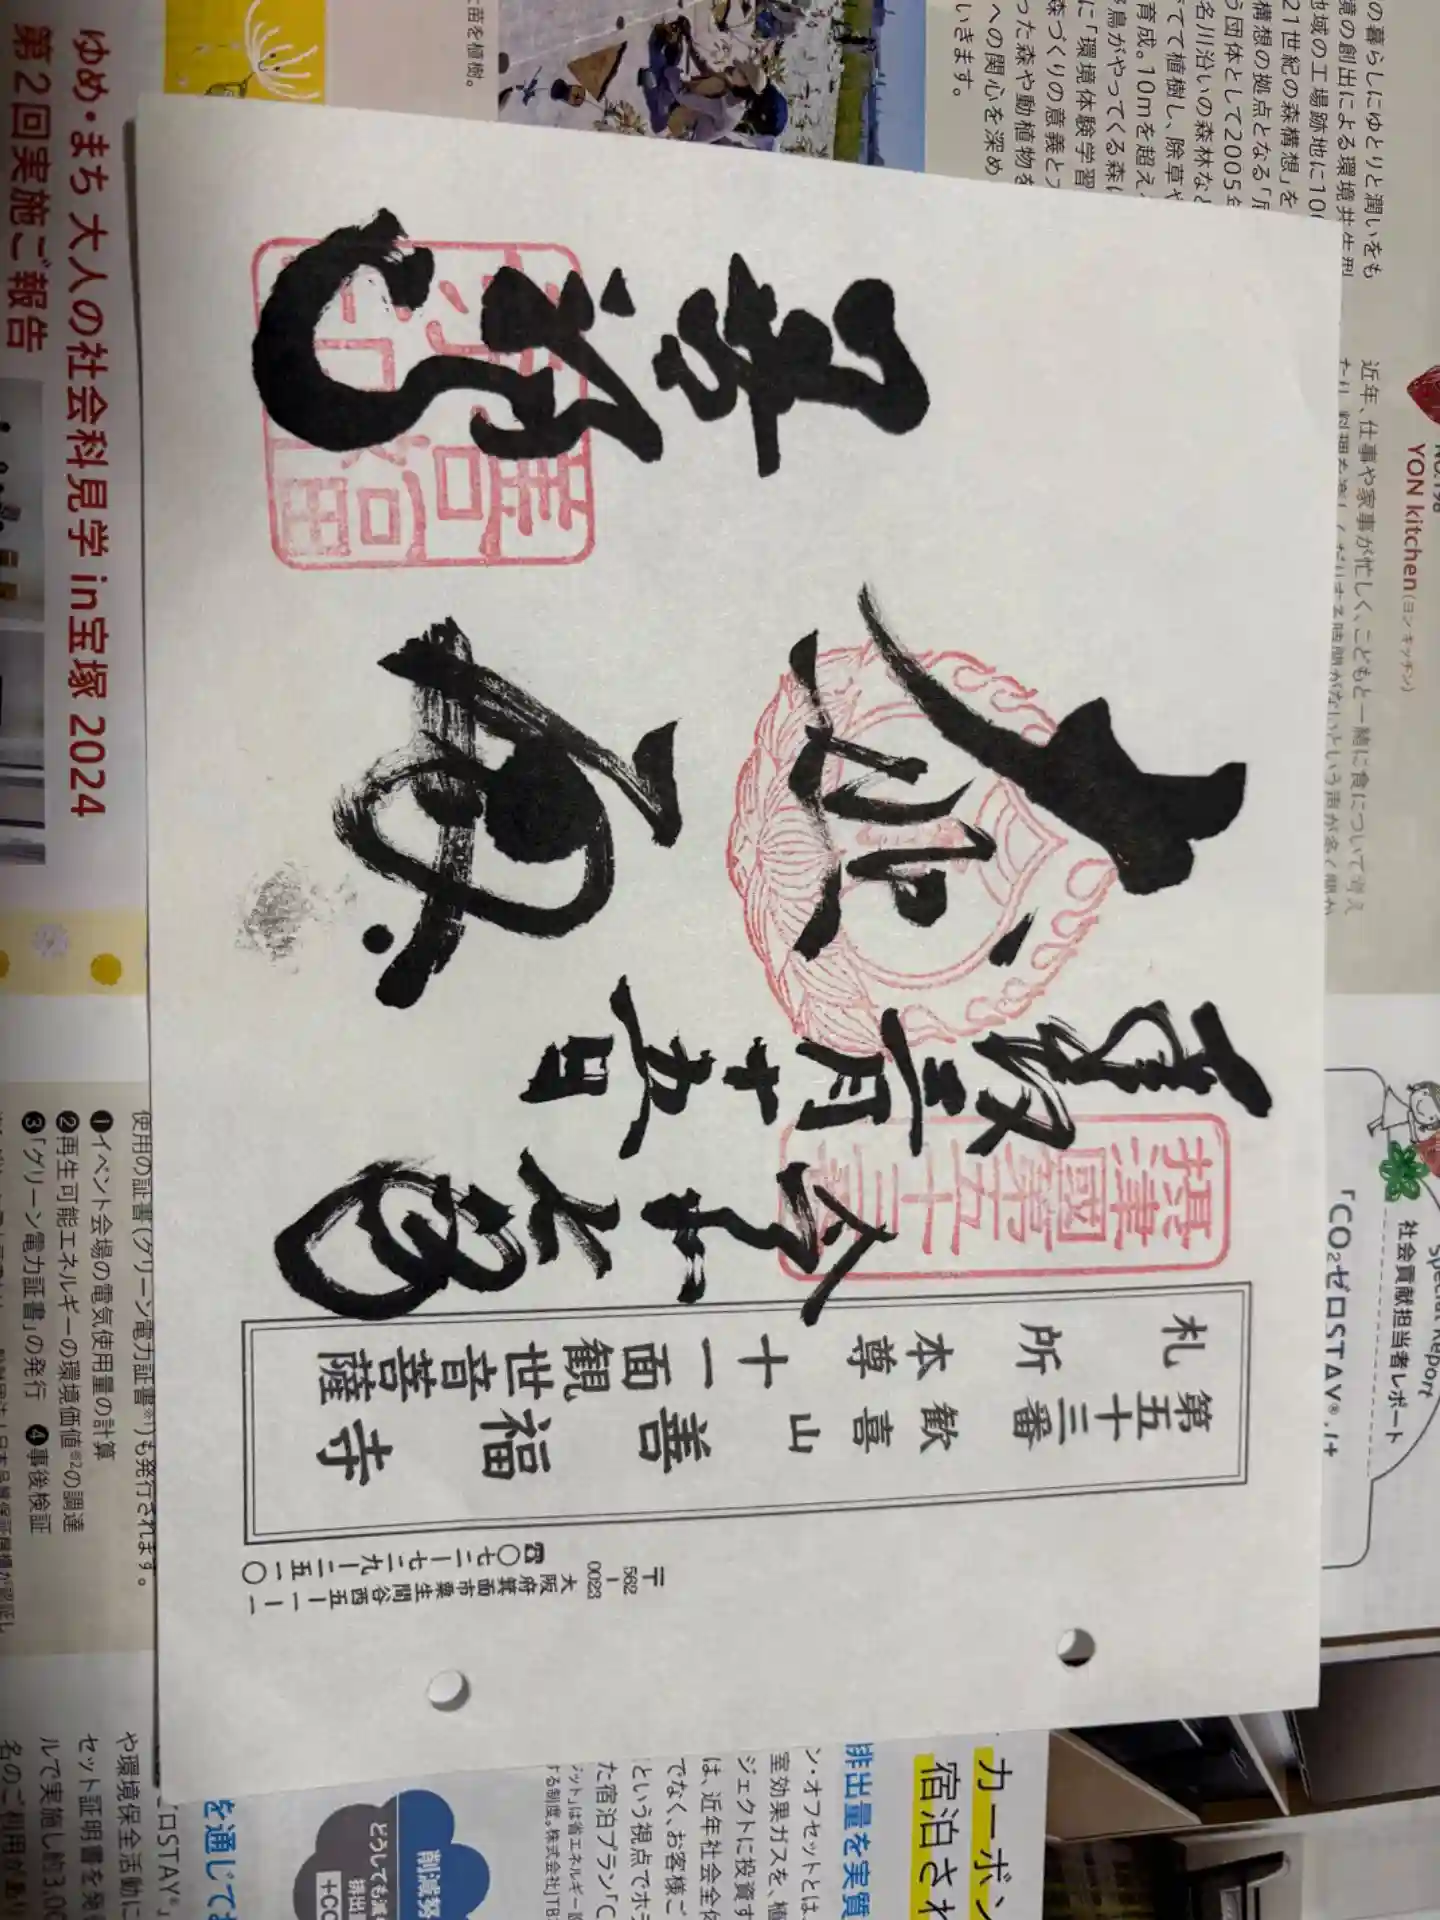 奉拝
大悲殿
善福寺
令和七年
三月十五日
摂津
國
第
五十三番
札所
第五十三番
本尊
歓喜山
十一面観世音菩薩
善福寺
〒562-0023
大阪府箕面市粟生間谷西五-一-一一
☎〇七二-七二九-二五一〇
ゆめ・まち 大人の社会科見学 in宝塚 2024
第2回実施ご報告
苗を植樹。
の暮らしにゆとりと潤いをも
境の創出による環境共生型
地域の工場跡地に10
21世紀の森構想」を
構想の拠点となる「
う団体として2005年
名川沿いの森林など
てて植樹し、除草や
育成。10mを超え
鳥がやってくる森に
に「環境体験学習
森づくりの意義と
った森や動植物を
への関心を深め
いきます。
No.198
YON kitchen(ヨンキッチン)
近年、仕事や家事が忙しく、こどもと一緒に食について考え
Special Report
社会貢献担当者レポート
「CO₂ゼロSTAY®」+
使用の証書(グリーン電力証書※1)も発行されます。
❶イベント会場の電気使用量の計算
❷再生可能エネルギーの環境価値※2の調達
❸「グリーン電力証書」の発行 ❹事後検証
カーボン
宿泊され
排出量を実質
ン・オフセットとは、
室効果ガスを、植
ジェクトに投資す
は、近年社会全体
でなく、お客様ご
という視点でホテ
た宿泊プラン「C
する制度。株式会社JTB
削減努
どうしても減
排出
+CO
を通じてお
ロSTAY®」
や環境保全活動に
セット証明書を発
ルで実施し約3,00
名のご利用があり